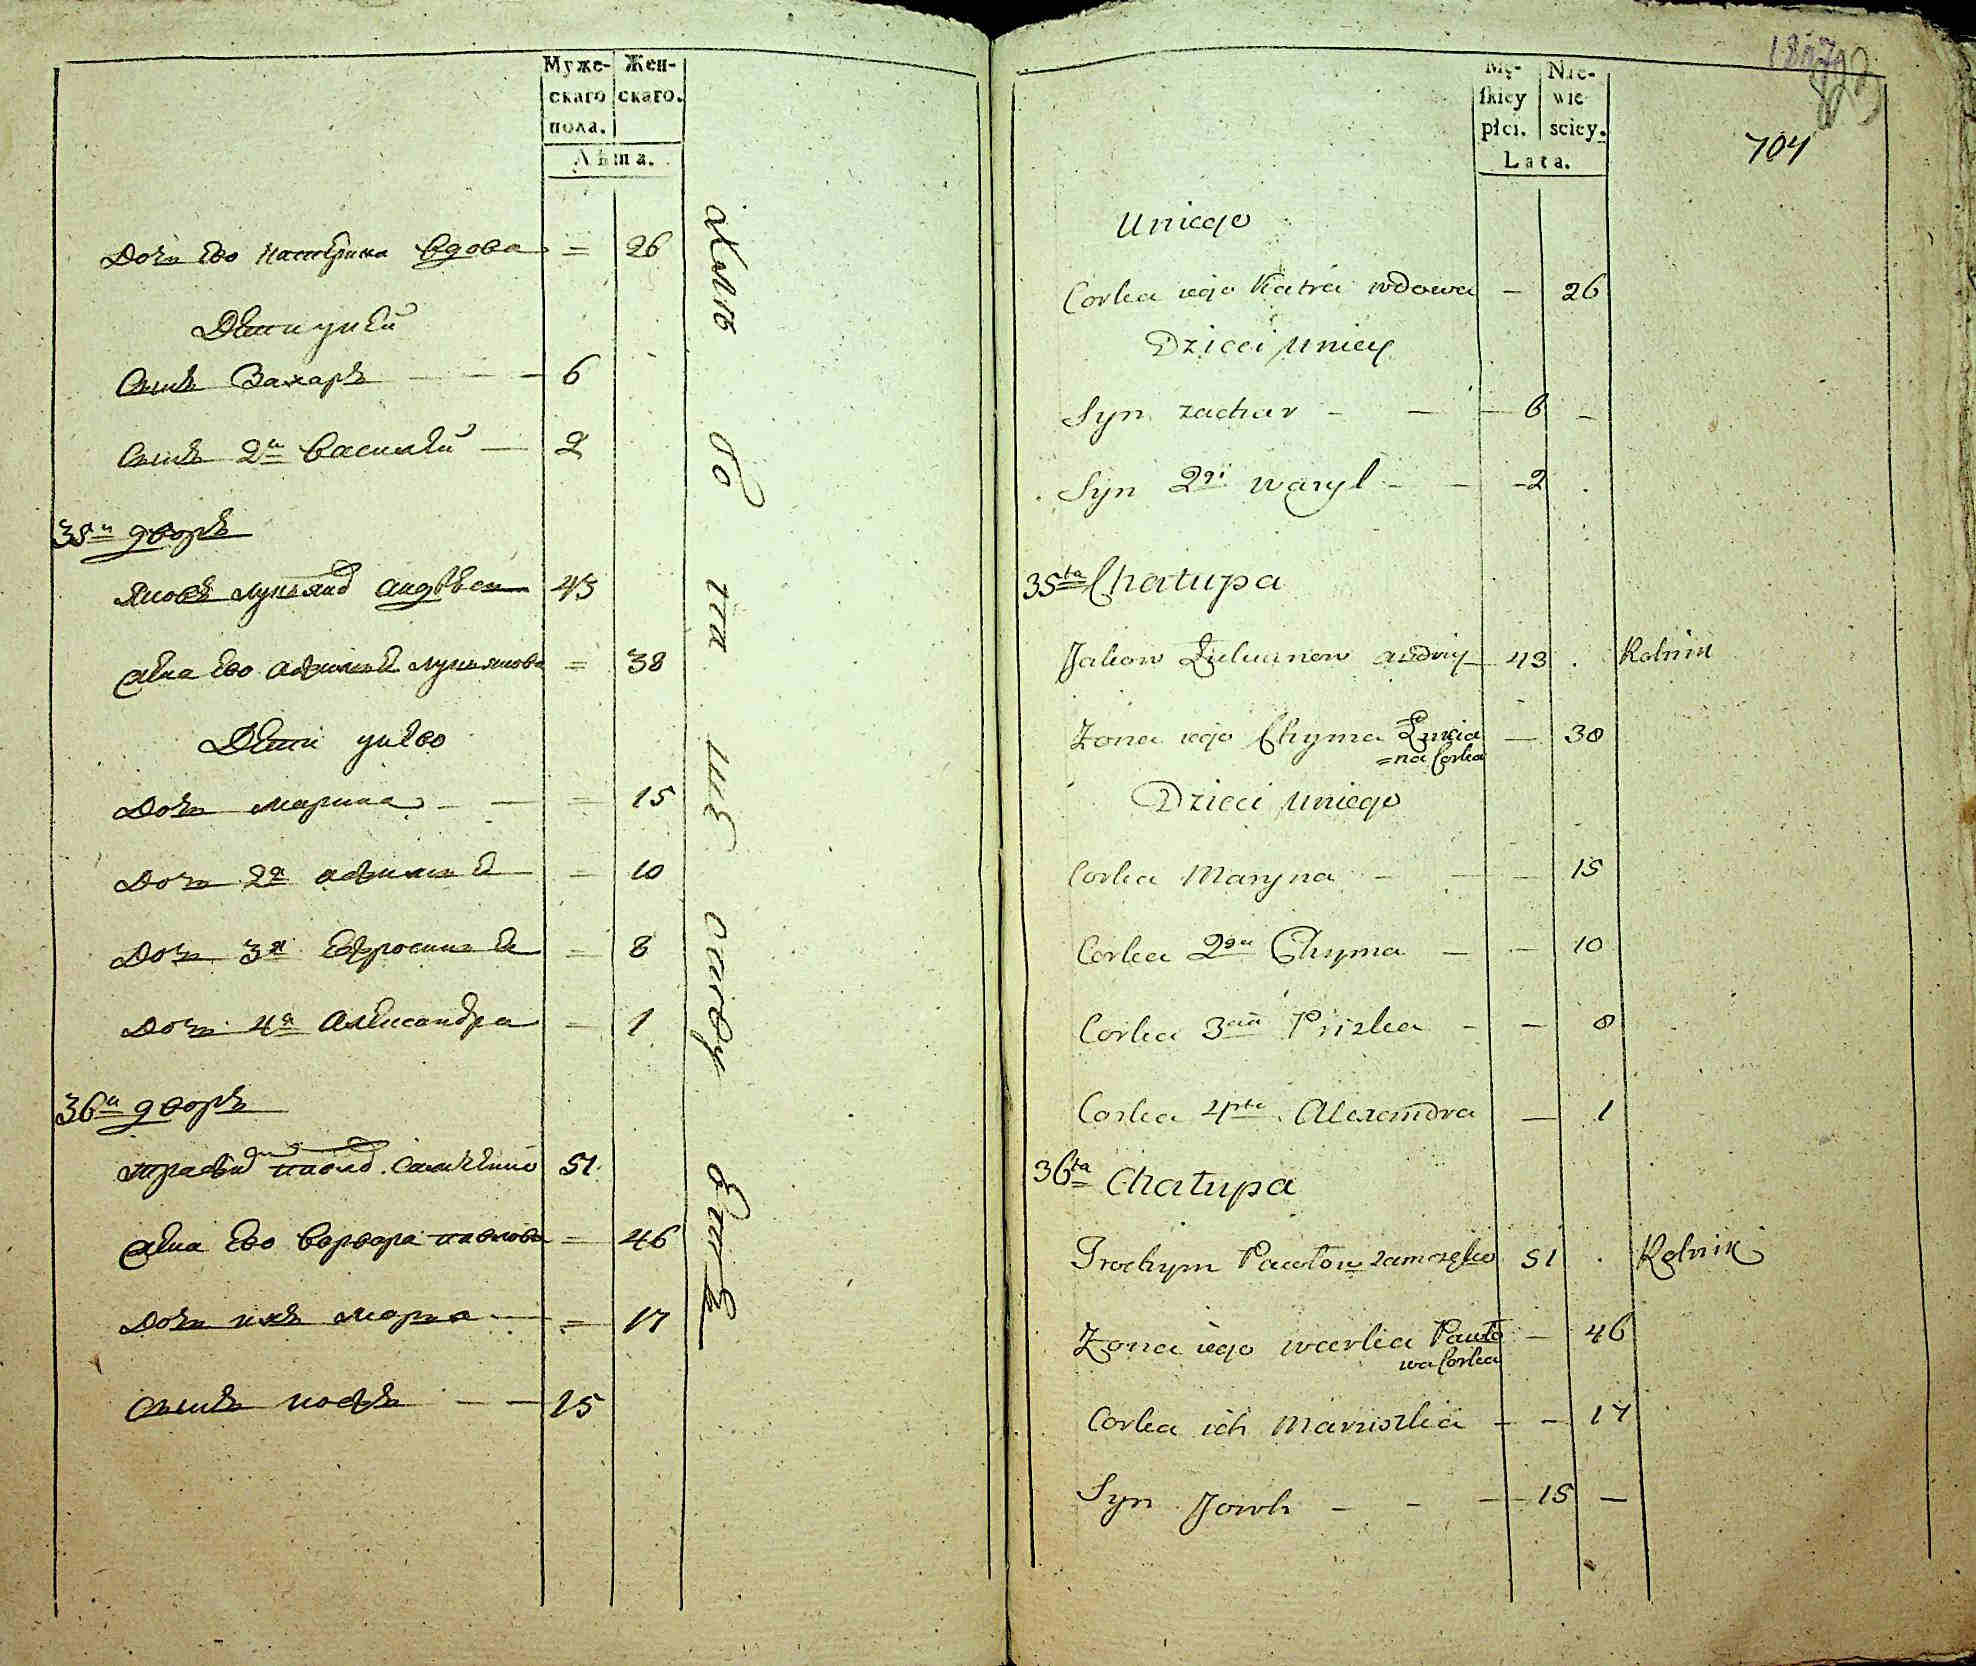 Муже-
скаго
пола.
Жен-
скаго.
Лѣта.
Дочь Ево Катерина Вдова = 26
Дети у ней
Сынъ Захаръ — — — 6
Сынъ 2й Василей — 2
35й дворъ
Яковъ Лукьянов 43
Жена Ево Афимья Лукьянова = 38
Дети у нево
Дочь Марина — — = 15
Дочь 2я Афимья — = 10
Дочь 3я Ефросинья = 8
Дочь 4я Александра = 1
36й дворъ
Трафим Павлов 51
Жена Ево Варвара Павлова = 46
Дочь ихъ Марья — = 17
Сынъ Иосифъ — — 15
Mę-
skiey
płci.
Nie-
wie
sciey.
Lata.
704
Uniego
Corka iego Katra wdowa — 26
Dzieci Uniey
Syn zachar — — — 6 —
Syn 2gi wasyl — — — 2
35ta Chałupa
Jakow Łukianow 43 Rolnik
Zona iego Chyma 38
=na Corka
Dzieci Uniego
Corka Maryna — — — 15
Corka 2ga Chyma — — 10
Corka 3cia Priska — — 8
Corka 4ta Alexandra — 1
36ta Chałupa
Trochym Pawłow 51 Rolnik
Zona iego warka Pawło — 46
wa Corka
Corka ich Maruszka — — 17
Syn Jowh — — — 15 —